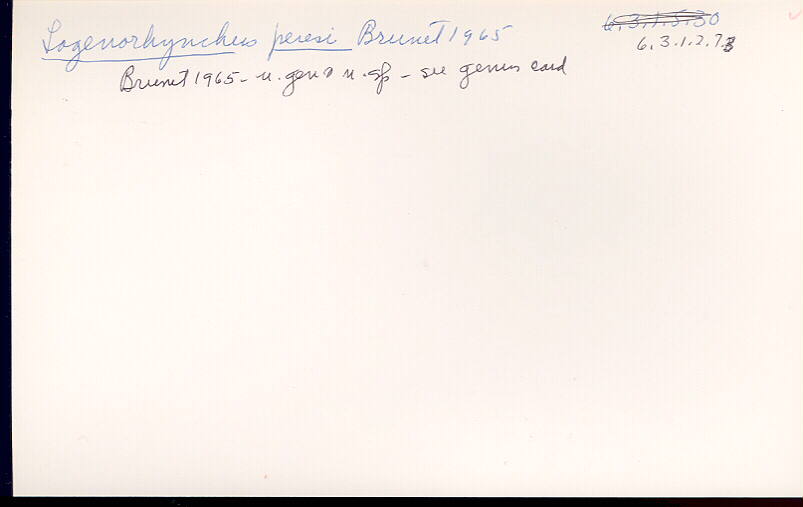 Logenorhynchus peresi Brunet 1965
6.3.1.5.30
6.3.1.2.73
Brunet 1965 - n. gen & n. sp - see genus card